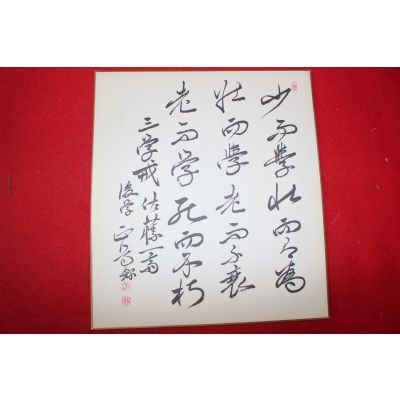 少而學壮而有為
壮而學老而不衰
老而学死而不朽
三学戒佐藤一斎
後学